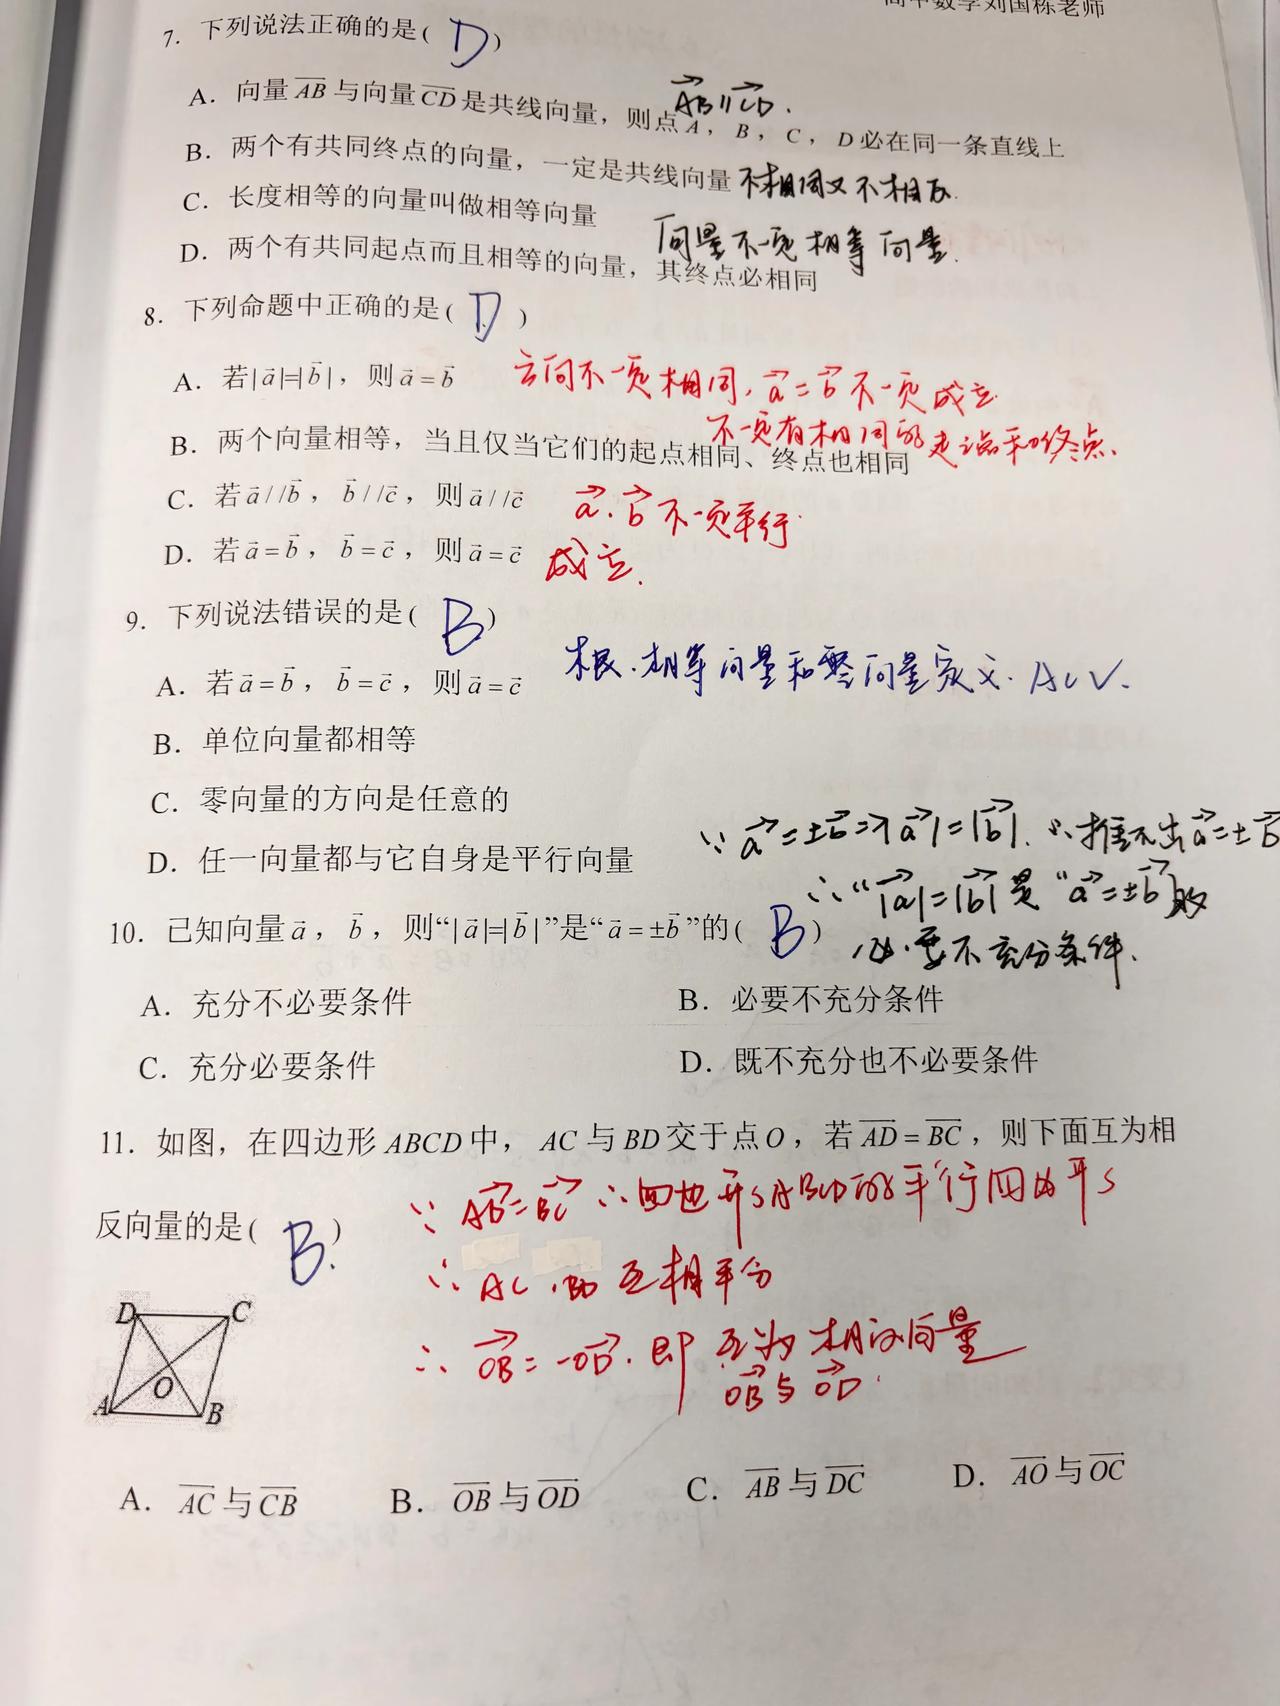 高中数学刘国栋老师
7. 下列说法正确的是( D )
A. 向量AB与向量CD是共线向量，则点A，B，C，D必在同一条直线上
AB∥CD.
B. 两个有共同终点的向量，一定是共线向量 不相同又不相反.
C. 长度相等的向量叫做相等向量
向量不一定相等向量.
D. 两个有共同起点而且相等的向量，其终点必相同
8. 下列命题中正确的是( D )
A. 若|a|=|b|，则a=b 方向不一定相同, a=b不一定成立
不一定有相同的起点和终点.
B. 两个向量相等，当且仅当它们的起点相同、终点也相同
C. 若a//b，b//c，则a//c a.b不一定平行
D. 若a=b，b=c，则a=c 成立.
9. 下列说法错误的是( B )
A. 若a=b，b=c，则a=c 根.相等向量和零向量定义. AC√.
B. 单位向量都相等
C. 零向量的方向是任意的
D. 任一向量都与它自身是平行向量
∵a=±b⇒|a|=|b|. ∴推不出a=±b
∴“|a|=|b|是“a=±b”的
10. 已知向量a，b，则“|a|=|b|”是“a=±b”的( B )
必要不充分条件.
A. 充分不必要条件 B. 必要不充分条件
C. 充分必要条件 D. 既不充分也不必要条件
11. 如图，在四边形ABCD中，AC与BD交于点O，若AD=BC，则下面互为相
∵AD=BC ∴四边形ABCD的平行四边形
反向量的是( B. )
∴AC.BD互相平分
∴OB=-OD.即互为相反向量
OB与OD.
D C
O
A B
A. AC与CB B. OB与OD C. AB与DC D. AO与OC